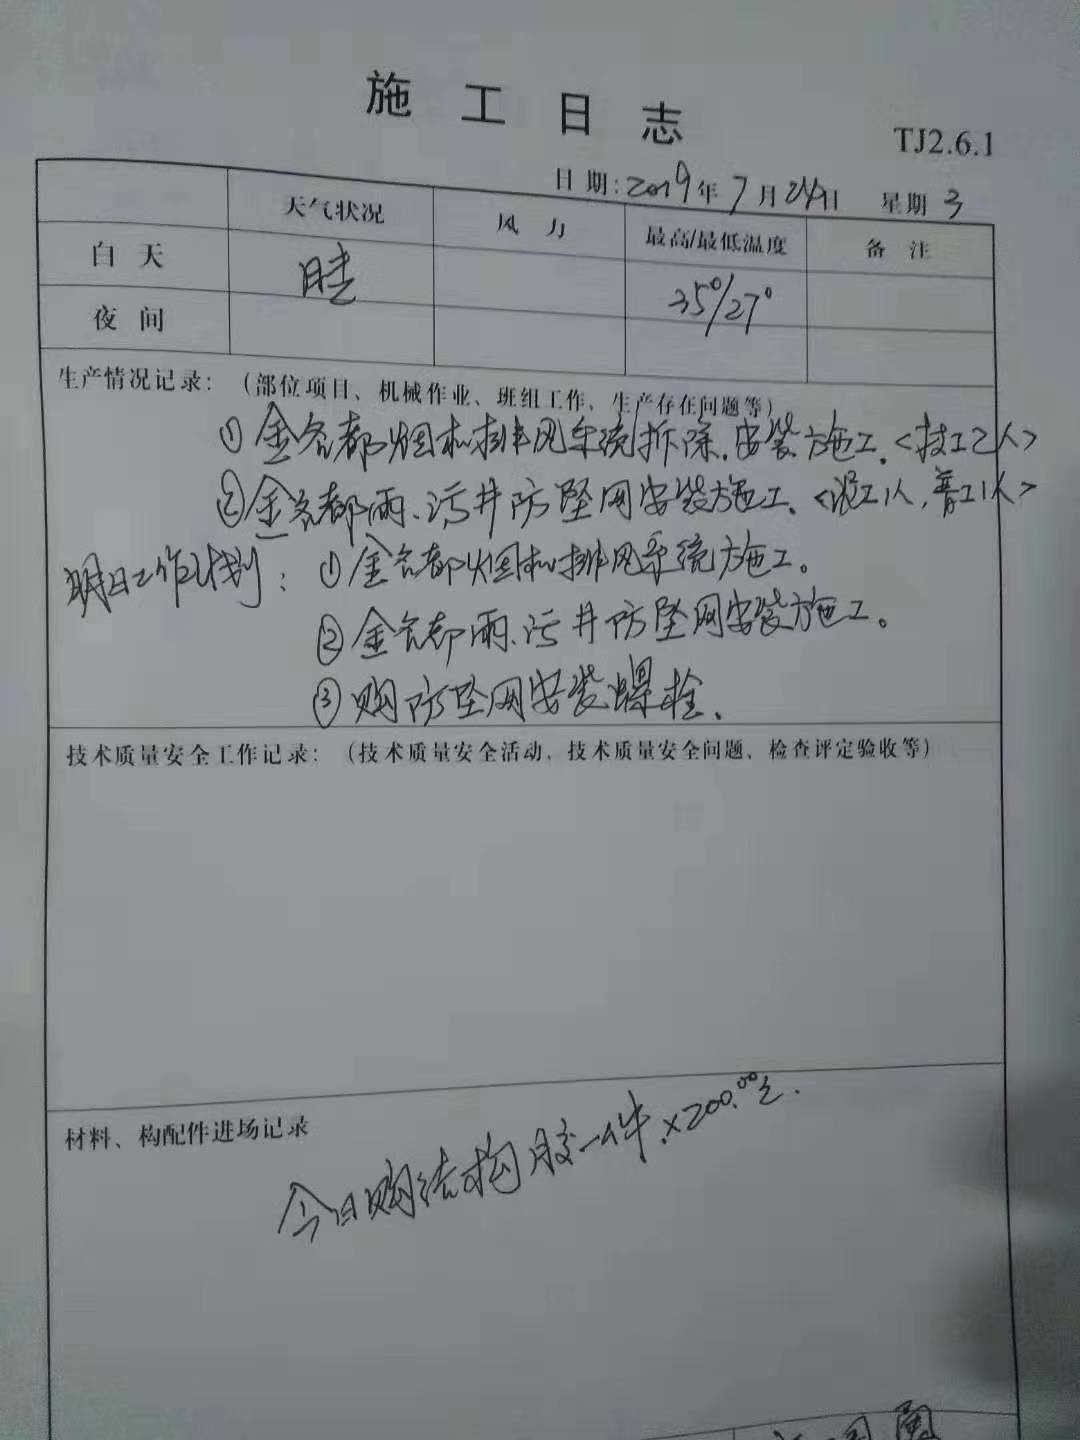 施工日志
TJ2.6.1
日期:2019年7月24日 星期3
天气状况 风力 最高/最低温度 备注
白天 晴 35°/27°
夜间
生产情况记录:(部位项目、机械作业、班组工作、生产存在问题等)
①金名都烟机排风系统拆除.安装施工.<技工2人>
②金名都雨.污井防坠网安装施工.<泥工1人,普工1人>
明日工作计划:①金名都烟机排风系统施工。
②金名都雨.污井防坠网安装施工。
③购防坠网安装螺栓.
技术质量安全工作记录:(技术质量安全活动、技术质量安全问题、检查评定验收等)
材料、构配件进场记录
今日购结构胶一件.×200.00元.